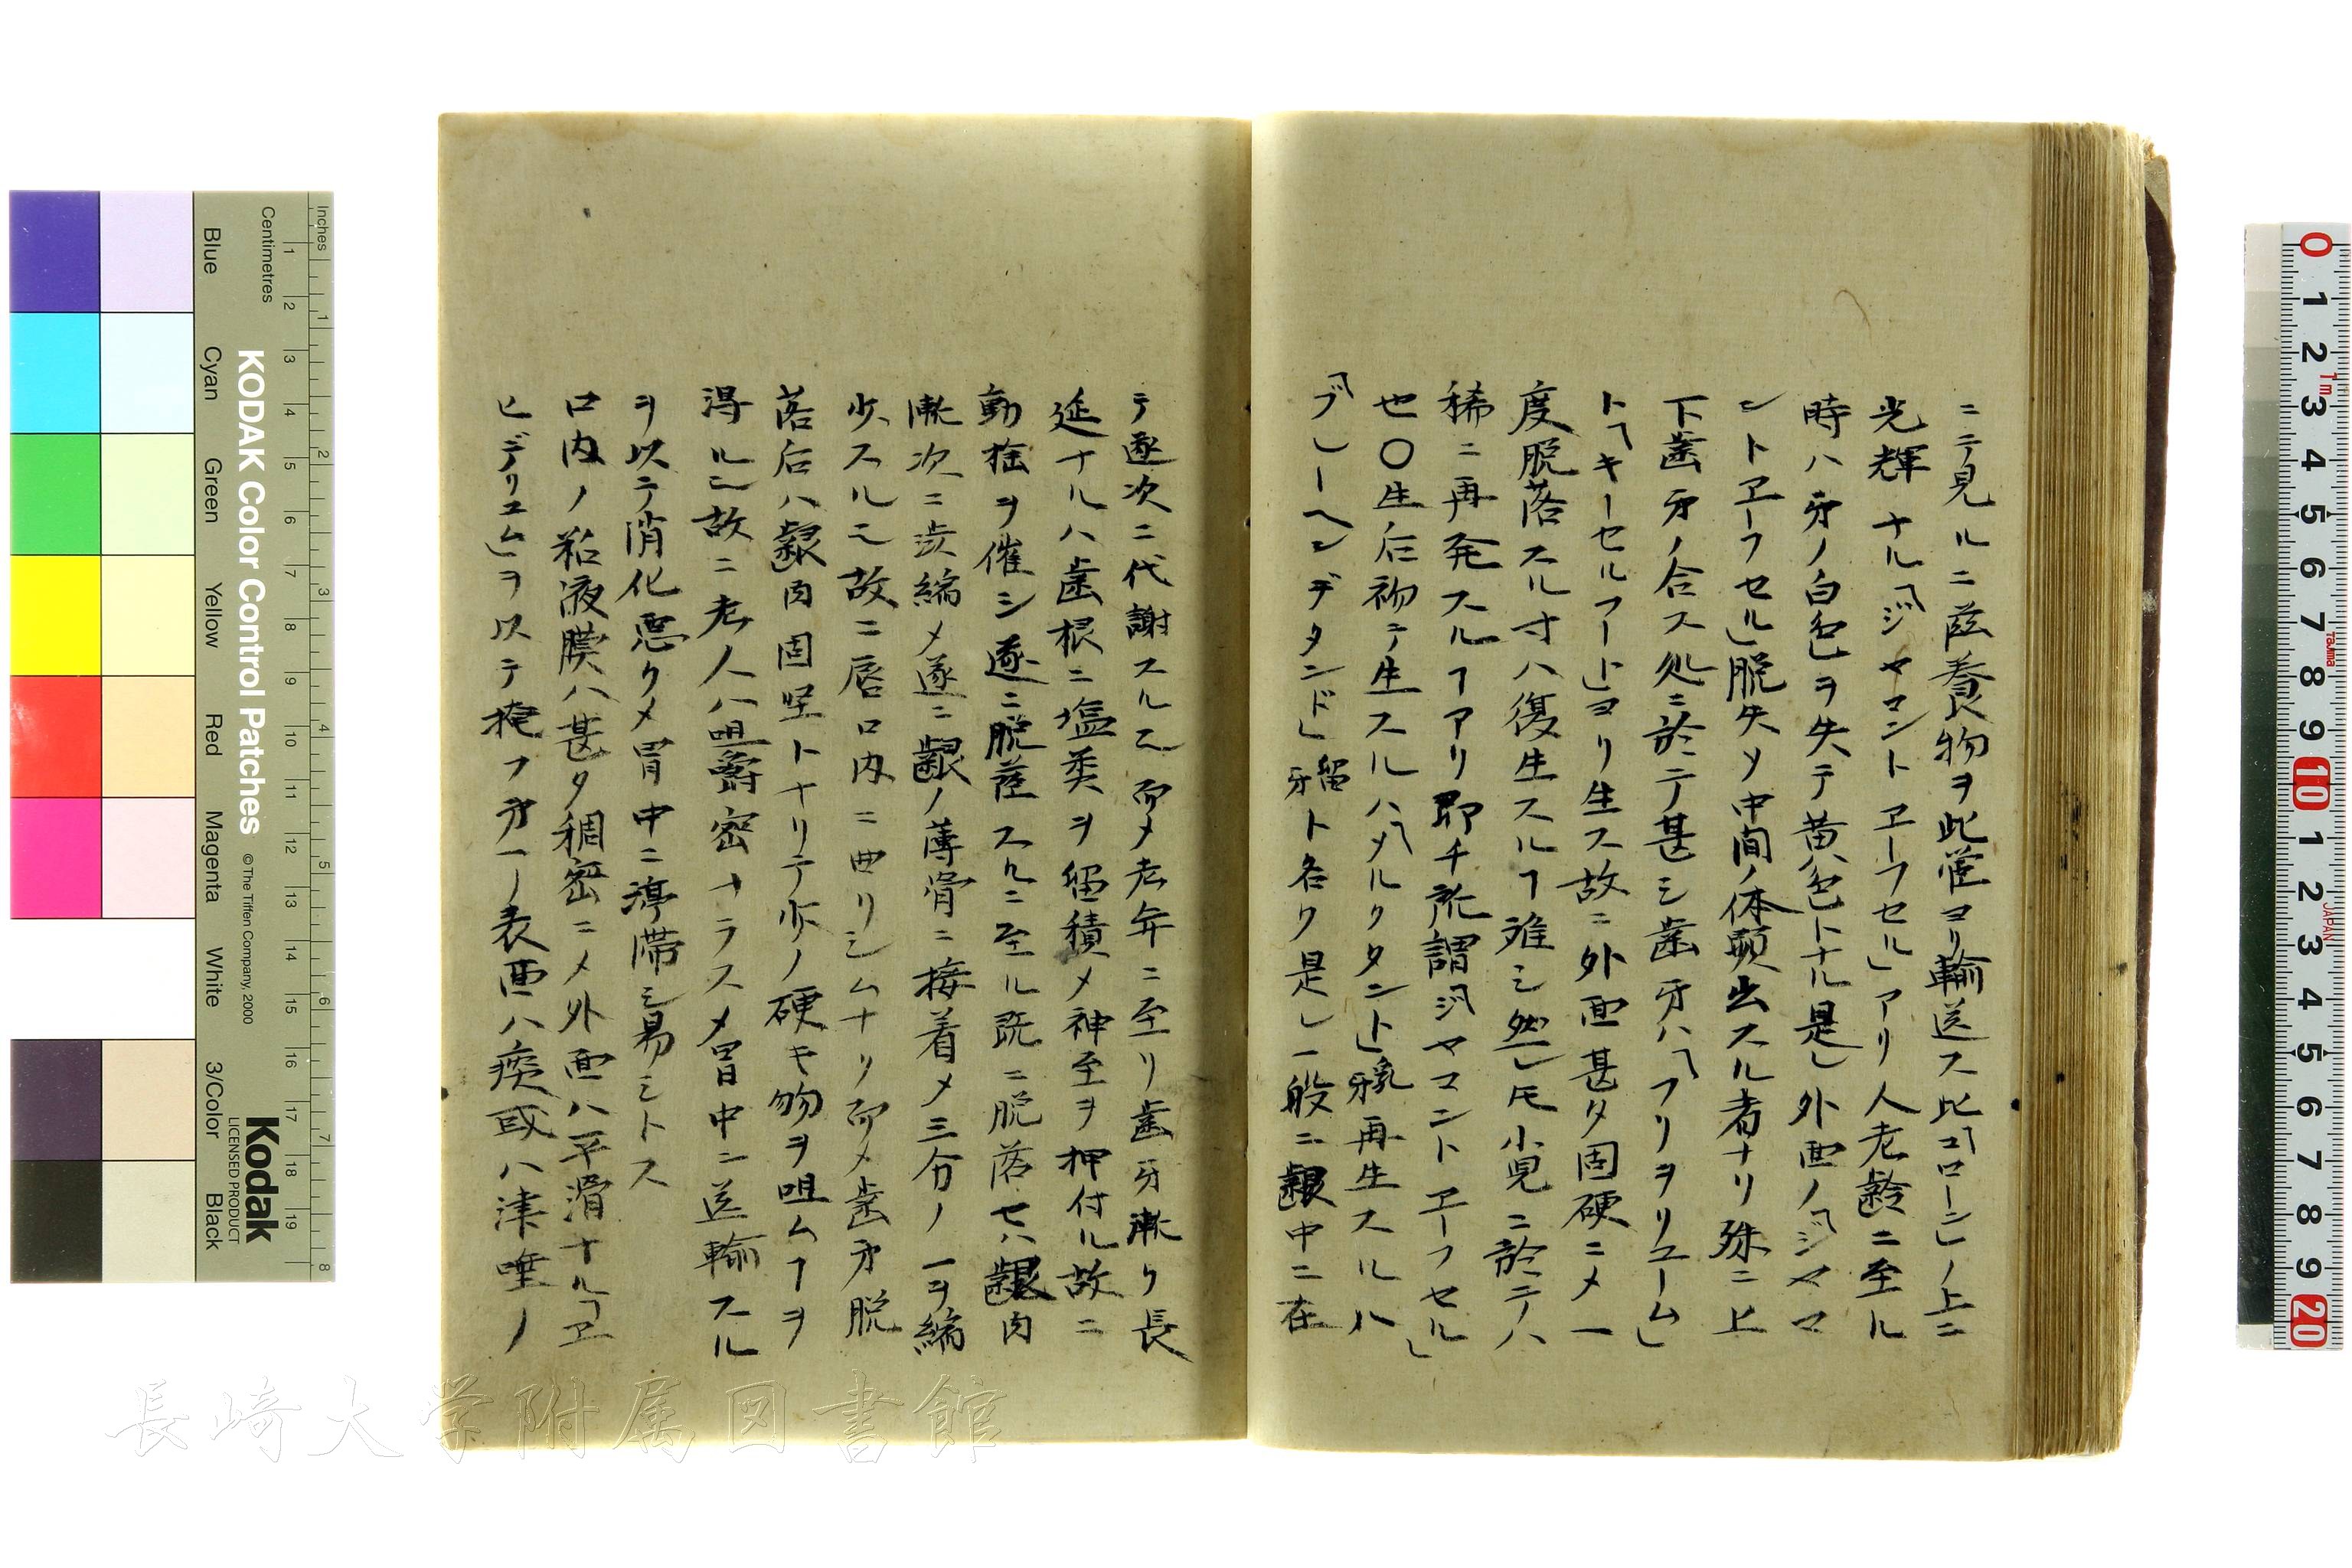 ニテ見ルニ滋養物ヲ此管ヨリ輸送ス比「コローン」ノ上ニ
光輝ナル「ジヤマントヱーフセル」アリ人老齢ニ至ル
時ハ牙ノ白色ヲ失テ黄色トナル是レ外面ノ「ジヤマ
ントヱーフセル」脱失ソ中間ノ体顕出スル者ナリ殊ニ上
下歯牙ノ合ス処ニ於テ甚シ歯牙ハ「フリヲリユーム」
ト「キーセルフート」ヨリ生ス故ニ外面甚タ固硬ニメ一
度脱落スル寸ハ復生スルヿ難シ然レ𪜈小児ニ於テハ
稀ニ再発スルヿアリ即チ所謂「ジヤマントヱーフセル」
也〇生后初テ生スルハ「メルクタント」乳牙再生スルハ
「ブレーヘンデタンド」留牙ト名ク是レ一般ニ齦中ニ在
テ逐次ニ代謝スル也而メ老年ニ至リ歯牙漸ク長
延ナルハ歯根ニ塩類ヲ留積メ神至ヲ押付ル故ニ
動揺ヲ催シ遂ニ脱落スルニ至ル既ニ脱落セハ齦肉
漸次ニ次縮メ遂ニ齦ノ薄骨ニ接着メ三分ノ一ヲ縮
少スル也故ニ唇口内ニ曲リシムナリ而メ歯牙脱
落后ハ齦肉固堅トナリテ少ノ硬キ物ヲ咀ムヿヲ
得ル也故ニ老人ハ咀嚼密ナラスメ胃中ニ送輸スル
ヲ以テ消化悪クメ胃中ニ渟滞シ易シトス
口内ノ粘液膜ハ甚タ稠密ニメ外面ハ平滑ナル「ヱ
ヒデリユム」ヲ以テ掩フ第一ノ表面ハ痰或ハ津唾ノ
長崎大学附属図書館
Inches
Centimetres
KODAK Color Control Patches
© The Tiffen Company, 2000
Kodak
LICENSED PRODUCT
Blue
Cyan
Green
Yellow
Red
Magenta
White
3/Color
Black